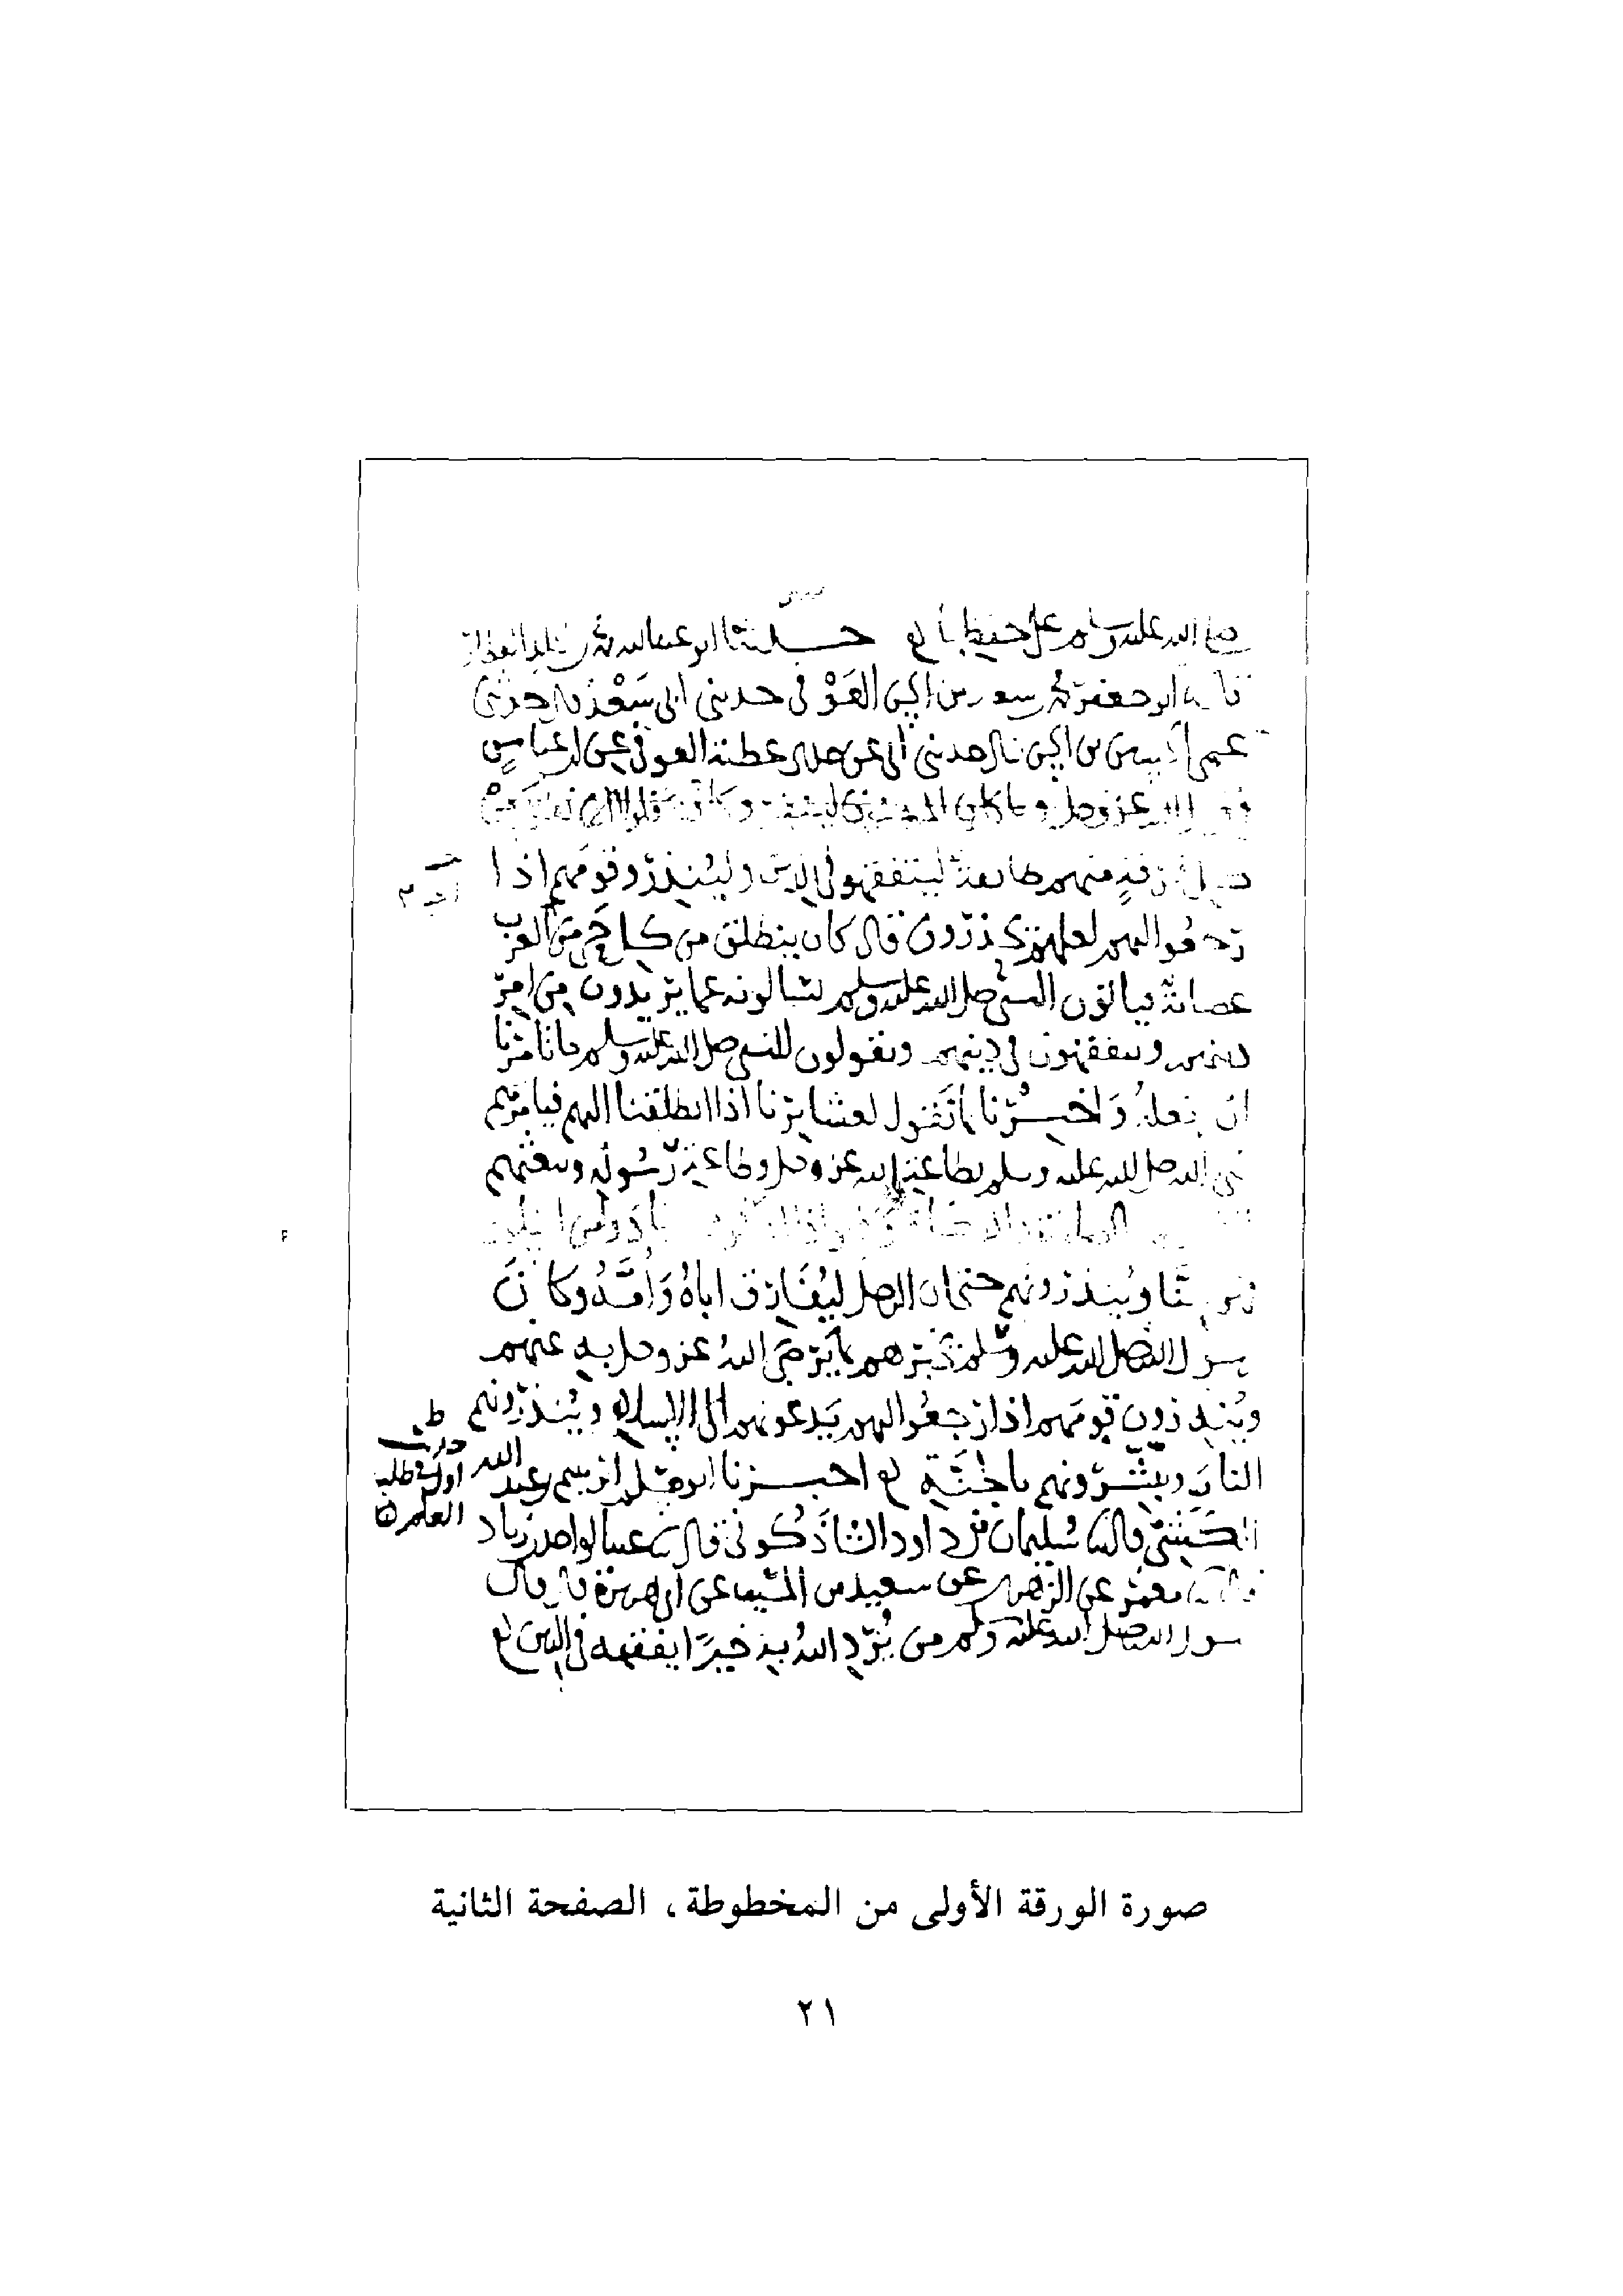 صلى الله عليه وسلم على حفظها حدثنا ابو عبدالله محمد بن مخلد العطار
ابو جعفر محمد بن سعد بن الحسن العوفي حدثني ابي سعد قال حدثني
عمي الحسين بن الحسن قال حدثني ابي عن جدي عطية العوفي عن ابن عباس
في قول الله عز وجل وما كان المؤمنون لينفروا كافة فلولا نفر من
كل فرقة منهم طائفة ليتفقهوا في الدين ولينذروا قومهم اذا
رجعوا اليهم لعلهم يحذرون قال كان ينطلق من كل حي من العرب
عصابة فياتون النبي صلى الله عليه وسلم فيسالونه عما يريدون من امر
دينهم ويتفقهون في دينهم ويقولون للنبي صلى الله عليه وسلم ما تامرنا
ان نفعله واخبرنا ما نقول لعشايرنا اذا انطلقنا اليهم فيامرهم
نبي الله صلى الله عليه وسلم بطاعة الله عز وجل وطاعة رسوله ويبعثهم
وينذرونهم حتى ان الرجل ليفارق اباه وامه وكان
رسول الله صلى الله عليه وسلم يخبرهم بما يرضى الله عز وجل به عنهم
وينذرون قومهم اذا رجعوا اليهم يدعونهم الى الاسلام وينذرونهم
النار ويبشرونهم بالجنة اخبرنا ابو مسلم ابرهيم بن عبد الله
الكشي قال سليمان بن داود الشاذكوني قال عبد الواحد بن زياد
معمر عن الزهري عن سعيد بن المسيب عن ابي هريرة قال قال
رسول الله صلى الله عليه وسلم من يرد الله به خيرا يفقهه في الدين
صورة الورقة الأولى من المخطوطة، الصفحة الثانية
٢١